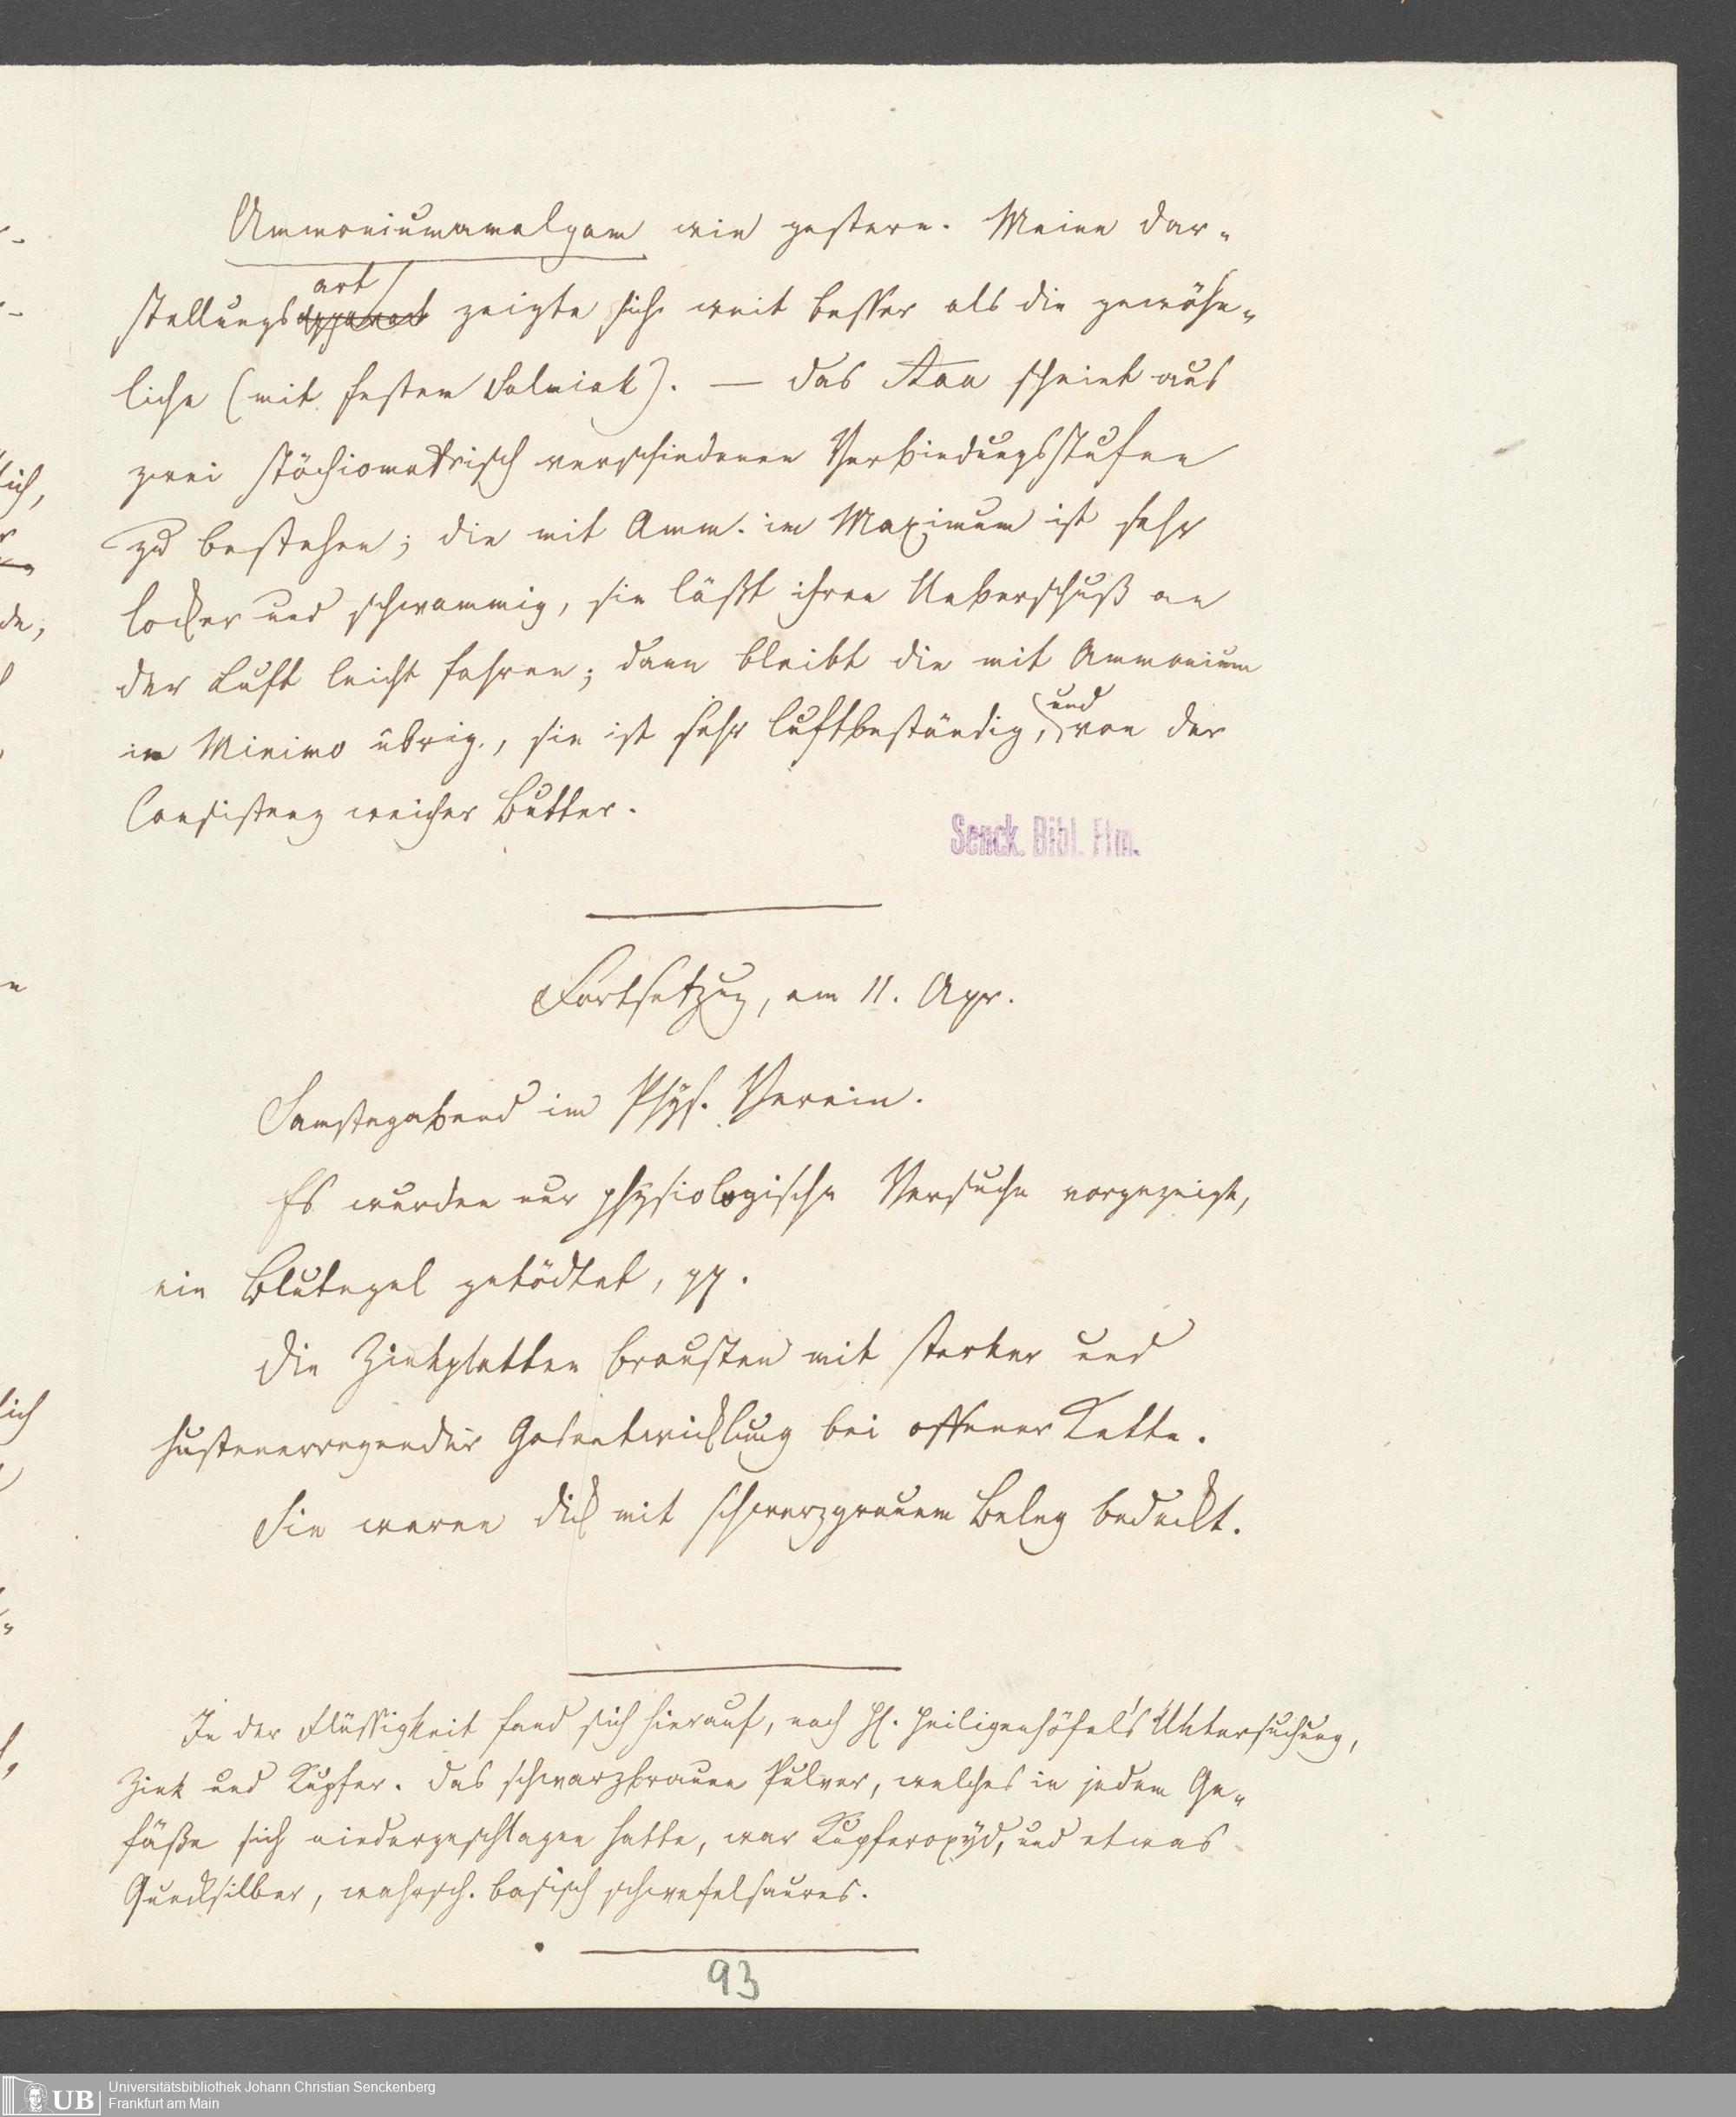 Ammoniumamalgam wie gestern. Meine Dar-
art
stellungsapparat zeigte sich weit besser als die gewöhn-
liche (mit festem Salmiak). — Das Aaa scheint aus
zwei stöchiometrisch verschiedenen Verbindungsstufen
zu bestehen; die mit Amm. im Maximum ist sehr
locker und schwammig, sie läßt ihren Ueberschuß an
der Luft leicht fahren; dann bleibt die mit Ammonium
und
im Minimo übrig, sie ist sehr luftbeständig, von der
Consistenz weicher Butter.
Senck. Bibl. Ffm.
Fortsetzung, am 11. Apr.
Samstagabend im Phys. Verein.
Es wurden nur physiologische Versuche vorgezeigt,
ein Blutegel getödtet, pp.
Die Zinkplatten brausten mit starker und
hustenerregender Gasentwicklung bei offener Kette.
Sie waren dick mit schwarzgrauem Beleg bedeckt.
In der Flüssigkeit fand sich hierauf, nach H. Heiligenhöfel's Untersuchung,
Zink und Kupfer. Das schwarzbraune Pulver, welches in jedem Ge-
fäße sich niedergeschlagen hatte, war Kupferoxyd, und etwas
Quecksilber, wahrsch. basisch schwefelsaures.
93
UB
Universitätsbibliothek Johann Christian Senckenberg
Frankfurt am Main